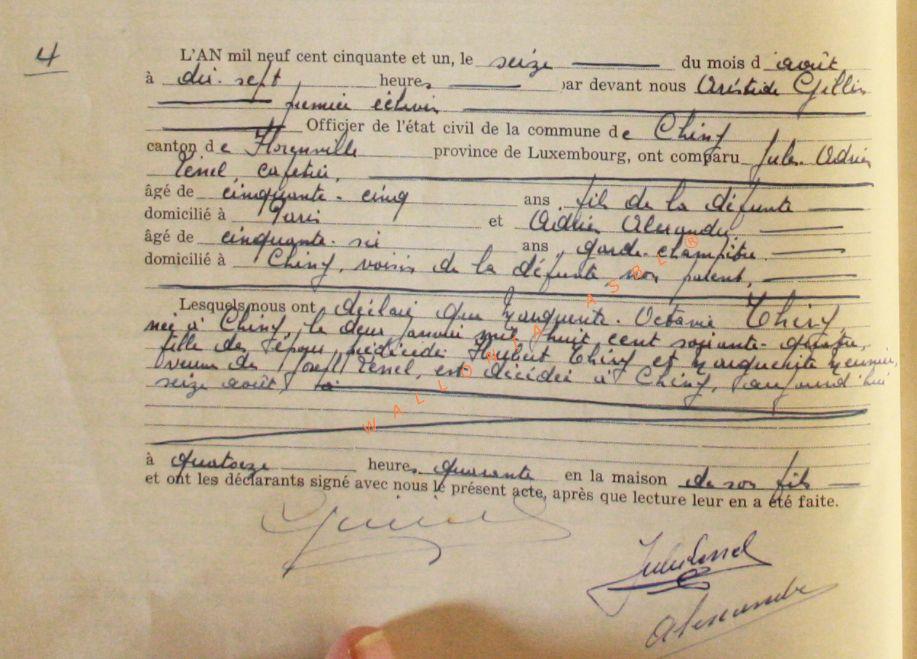 4
L'AN mil neuf cent cinquante et un, le seize du mois d août
à dix-sept heures par devant nous Aristide Gillin
premier échevin
Officier de l'état civil de la commune de Chiny
canton de Florenville province de Luxembourg, ont comparu Jules Adrien
cafetier,
âgé de cinquante-cinq ans fils de la défunte
domicilié à Paris et Adrien Alexandre
âgé de cinquante-six ans, garde-champêtre
domicilié à Chiny, voisin de la défunte, non parent,
Lesquels nous ont déclaré que Marguerite-Octavie Thiry
née à Chiny, le deux janvier mil huit cent soixante-quatre,
fille des époux prédécédés Hubert Thiry et Marguerite
veuve de Josef est décédée à Chiny, aujourd'hui
seize août
à quatorze heures quarante en la maison de son fils
et ont les déclarants signé avec nous le présent acte, après que lecture leur en a été faite.
Alexandre
WALLONIA ASBL B